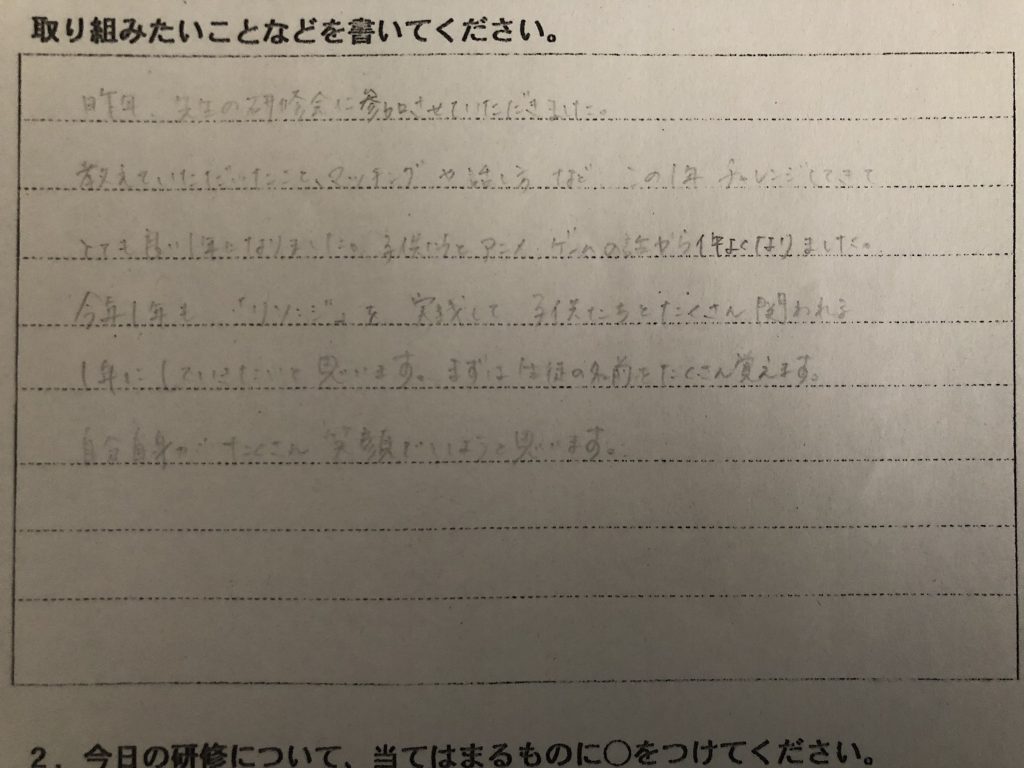 取り組みたいことなどを書いてください。
昨年、先生の研修会に参加させていただきました。
教えていただいたこと、マッチングや話し方など、この1年チャレンジしてきて
とても良い1年になりました。子供たちとアニメ、ゲームの話から仲よくなりました。
今年1年も、「リソンジ」を実践して子供たちとたくさん関われる
1年にしていきたいと思います。まずは生徒の名前をたくさん覚えます。
自分自身がたくさん笑顔でいようと思います。
2．今日の研修について、当てはまるものに○をつけてください。